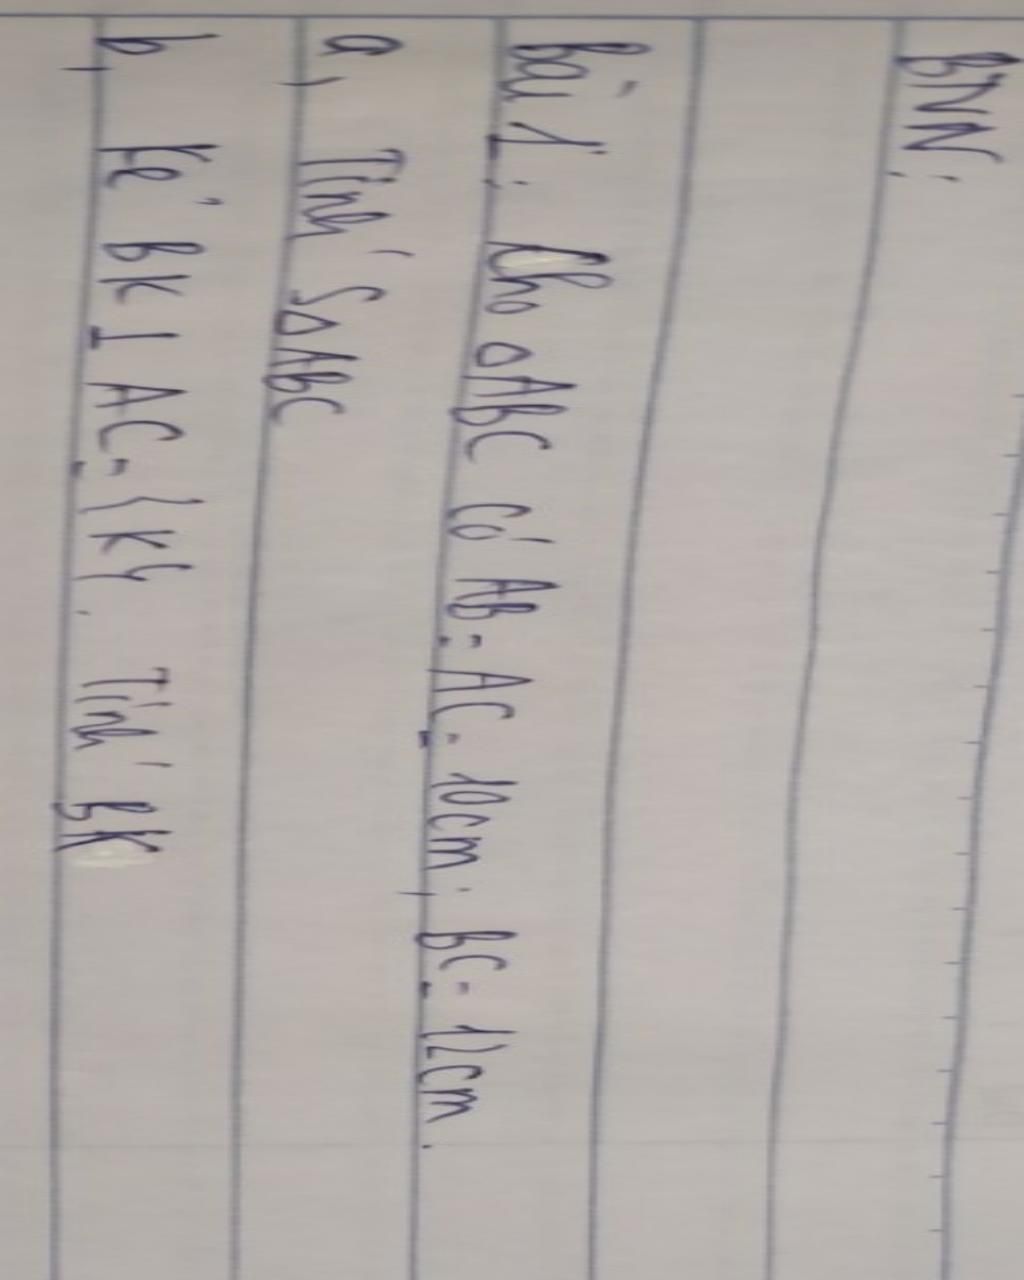 BNN:
Bài 1: Cho △ABC có AB = AC = 10cm; BC = 12cm.
a, Tính S△ABC
b, Kẻ BK ⊥ AC = {K}. Tính BK